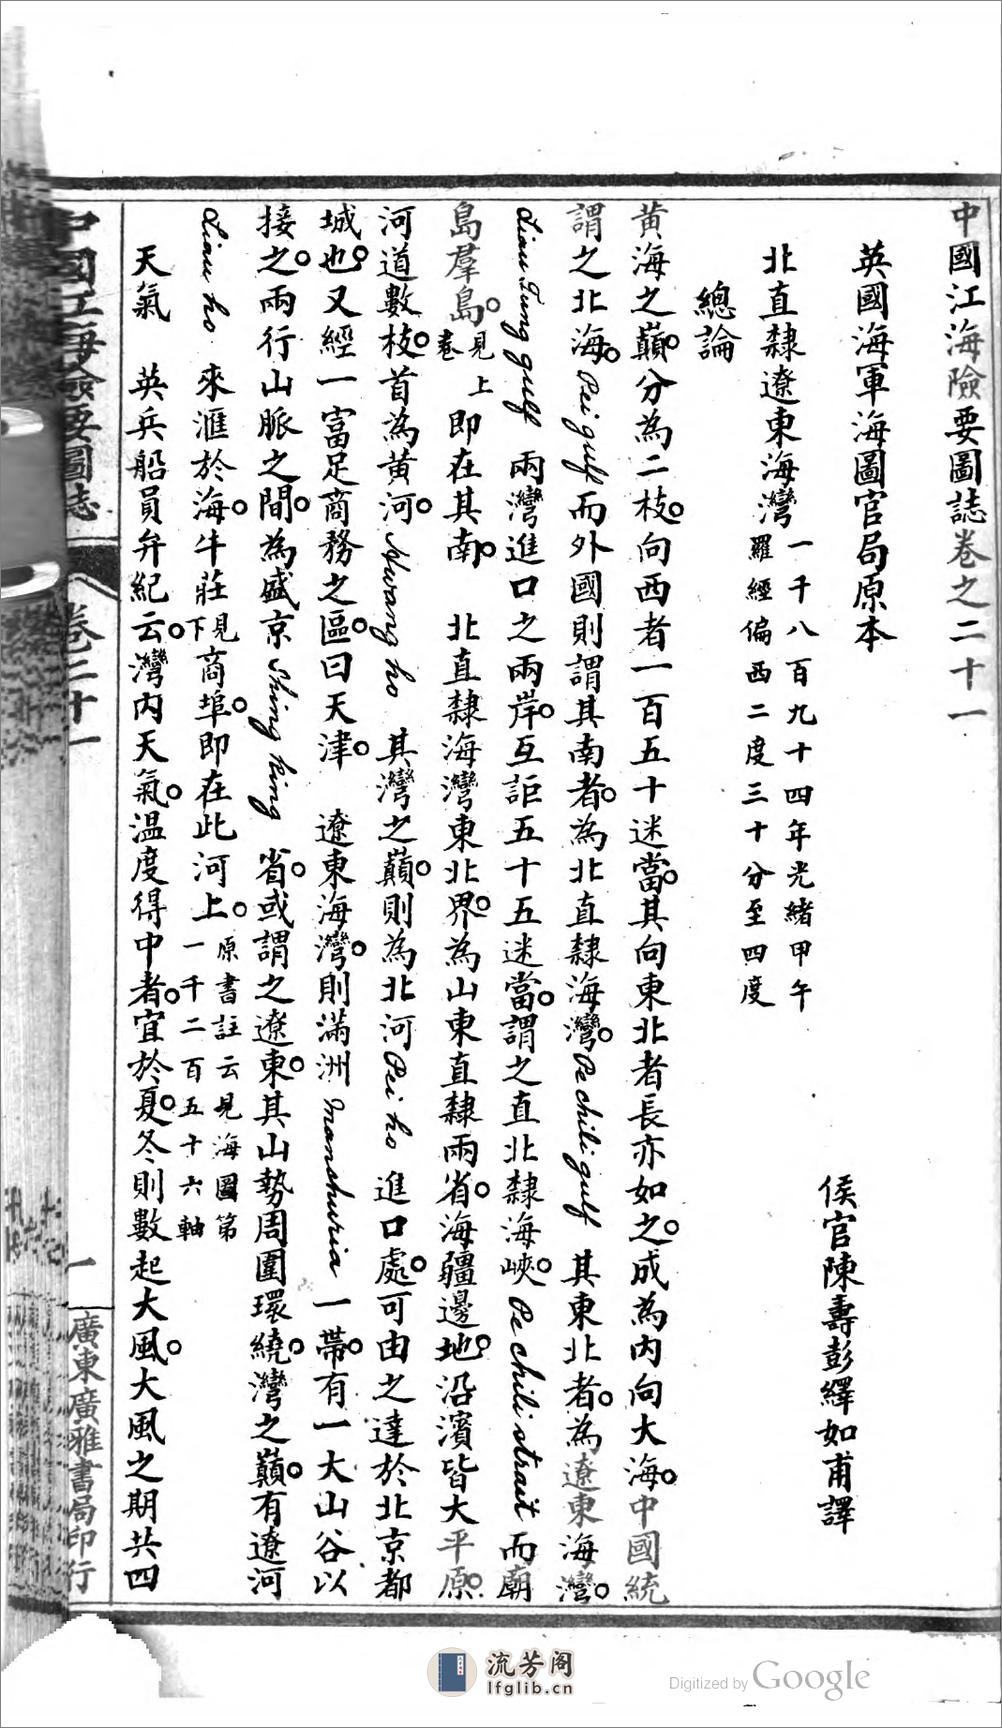 中國江海險要圖誌卷之二十一
英國海軍海圖官局原本
侯官陳壽彭繹如甫譯
北直隸遼東海灣 一千八百九十四年光緒甲午
羅經偏西二度三十分至四度
總論
黃海之巔分為二枝向西者一百五十迷當其向東北者長亦如之成為內向大海中國統
謂之北海Pei gulf而外國則謂其南者為北直隸海灣Pe chili gulf 其東北者為遼東海灣
Liau Tung gulf 兩灣進口之兩岸互詎五十五迷當謂之直北隸海峽Pe chili strait 而廟
島羣島見上卷即在其南 北直隸海灣東北界為山東直隸兩省海疆邊地沿濱皆大平原
河道數枝首為黃河Hwang ho 其灣之巔則為北河Pei ho 進口處可由之達於北京都
城也又經一富足商務之區曰天津 遼東海灣則滿洲Manshuria 一帶有一大山谷以
接之兩行山脈之間為盛京Shing king 省或謂之遼東其山勢周圍環繞灣之巔有遼河
Liau ho 來滙於海牛莊見下商埠即在此河上原書註云見海圖第一千二百五十六軸
天氣 英兵船員弁紀云灣內天氣溫度得中者宜於夏冬則數起大風大風之期共四
中國江海險要圖誌
卷二十一
一
廣東廣雅書局印行
流芳阁
lfglib.cn
Digitized by Google